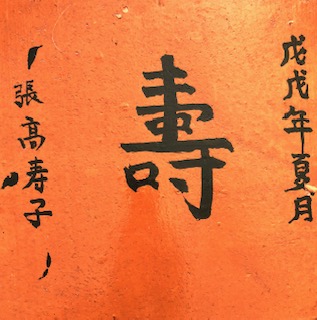 戊戌年夏月
壽
張高寿子